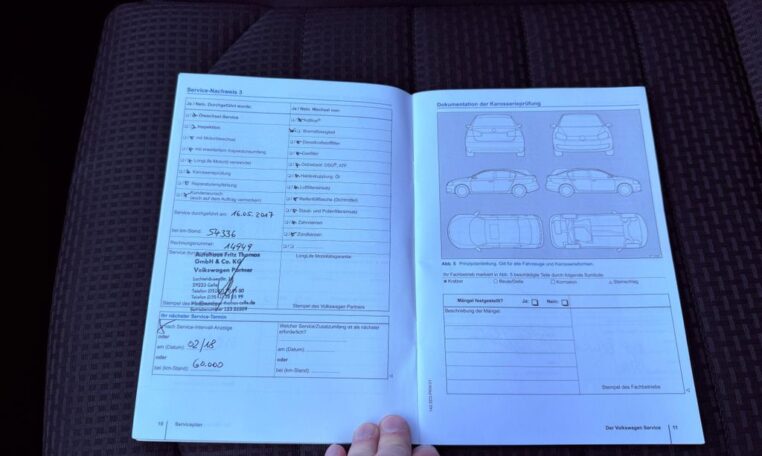 Service-Nachweis 3
Ja / Nein: Durchgeführt wurde:
Ja / Nein: Wechsel von:
Ölwechsel Service
Inspektion
mit Motorölwechsel
mit erweitertem Inspektionsumfang
LongLife Motoröl verwendet
Karosserieprüfung
Reparaturempfehlung
Kundenwunsch
(auch auf dem Auftrag vermerken)
AdBlue®
Bremsflüssigkeit
Dieselkraftstofffilter
Gasfilter
Haldexkupplung: Öl
Luftfiltereinsatz
Reifenfüllflasche (Dichtmittel)
Staub- und Pollenfiltereinsatz
Zahnriemen
Zündkerzen
Service durchgeführt am: 16.05.2017
bei km-Stand: 54336
Rechnungsnummer: 14949
Service
Autohaus Fritz Thomas
GmbH & Co. KG
Volkswagen Partner
Celle
Telefon
LongLife-Mobilitätsgarantie:
Stempel des
Stempel des Volkswagen Partners
Ihr nächster Service-Termin
nach Service-Intervall-Anzeige
oder
am (Datum): 02/18
oder
bei (km-Stand): 60.000
Welcher Service/Zusatzumfang ist als nächster
erforderlich?
am (Datum):
oder
bei (km-Stand):
10 Serviceplan
Dokumentation der Karosserieprüfung
Abb. 5 Prinzipdarstellung. Gilt für alle Fahrzeuge und Karosserieformen.
Ihr Fachbetrieb markiert in Abb. 5 beschädigte Teile durch folgende Symbole:
Kratzer
Beule/Delle
Korrosion
Steinschlag
Mängel festgestellt? Ja: Nein:
Beschreibung der Mängel:
Stempel des Fachbetriebs
Der Volkswagen Service 11